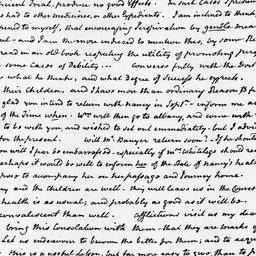 uncient Local, produce no good Effects. In such Cases
so had to other medicines, or other Expedients. I am inclined to think
tend to myself, that encouraging Perspiration by gentle mea
ul - and I am the more induced to mention this, by some Re
read in an old book respecting the utility of promoting persp
some Cases of Debility... Converse fully with the Doct
what he thinks, and what Degree of Success he expects.
their Children, and I have more than ordinary Reason to
glad you intend to return with nancy in Sept. - inform me as
of the Time when: Wm. will then go to albany, and come with
to be with you, and wished to set out immediately. but I advi
for the present. will Mr. Banyer return soon? If he should
on will I fear be embarrassed. especially if Mrs. Whiteley should
perhaps it would be well to inform her of the State of nancy's heal
pose to accompany her on her passage and Journey home.
y and the children are well. they will leave us in the Course
health is as usual; and probably as good as it will be.
convalescent than well. Afflictions visit us my dear
bring this Consolation with them - that they are marks of
Let us endeavour to become the better for them; and to acqu
This is a useful Lesson, but far more easy to give, than to